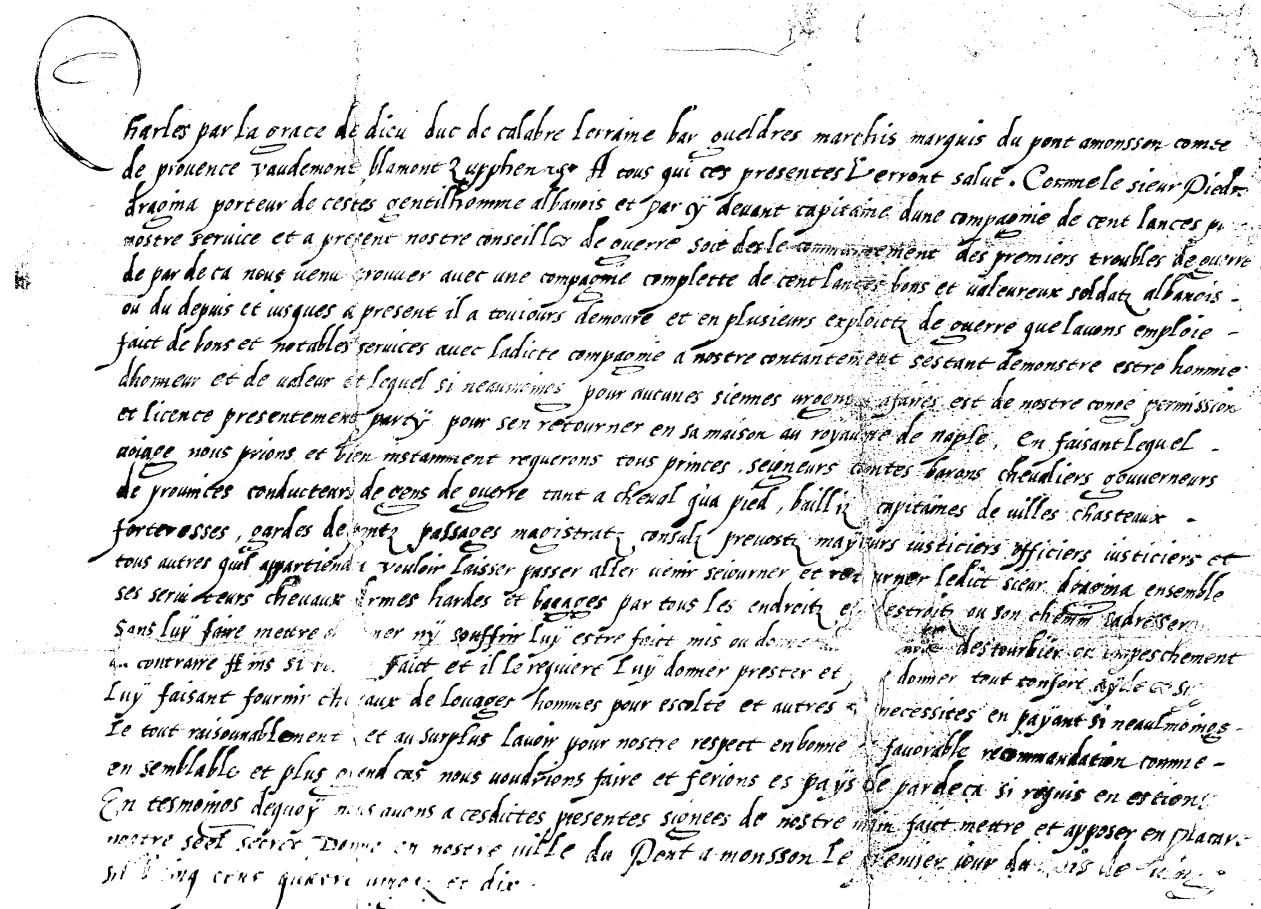 Charles par la grace de dieu duc de calabre lorraine bar gueldres marchis marquis du pont amonsson comte
de provence vaudemont blamont Zutphen &c A tous qui ces presentes Verront salut. Comme le sieur Piedro
dragina porteur de cestes gentilhomme albanois et par cÿ devant capitaine dune compagnie de cent lances
nostre service et a present nostre conseiller de guerre soit des le commancement des premiers troubles de guerre
de par deca nous venu trouver avec une compagnie complette de cent lances bons et valeureux soldatz albanois -
ou du depuis et iusques a present il a tousiours demoure et en plusieurs exploictz de guerre que lavons emploie -
faict de bons et notables services avec ladicte compagnie a nostre contantement sestant demonstre estre homme
dhonneur et de valeur et lequel si neaumoings pour aucunes siennes urgentes afaires est de nostre conge permission
et licence presentement partÿ pour sen retourner en sa maison au royaume de naple. En faisant lequel -
voiage nous prions et bien instamment requerons tous princes, seigneurs comtes barons chevaliers gouverneurs
de provinces conducteurs de gens de guerre tant a cheval qua pied, bailliz capitaines de villes chasteaux -
forteresses, gardes de pontz passages magistratz consulz prevostz mayeurs iusticiers officiers iusticiers et
tous autres quil appartiendra vouloir laisser passer aller venir seiourner et retourner ledict sieur dragina ensemble
ses serviteurs chevaux armes hardes et bagages par tous les endroitz et destroitz ou son chemin sadressera
sans luÿ faire mettre donner nÿ souffrir luÿ estre faict mis ou donne destourbier ou empeschement
au contraire Ains si faict et il le requiert luÿ donner prester et donner tout confort aÿde &
Luÿ faisant fournir chevaux de louages hommes pour escolte et autres necessites en paÿant si neaulmoings -
le tout raisonnablement et au surplus lavoir pour nostre respect en bonne favorable recommandation comme -
en semblable et plus grend cas nous voudrions faire et ferions es paÿs de par deca si requis en estions
En tesmoings dequoÿ nous avons a cesdictes presentes signees de nostre main faict mettre et apposer en placart
nostre seel secret Donne en nostre ville du Pont a monsson le premier iour du mois de
mil cinq cens quatre vingtz et dix.